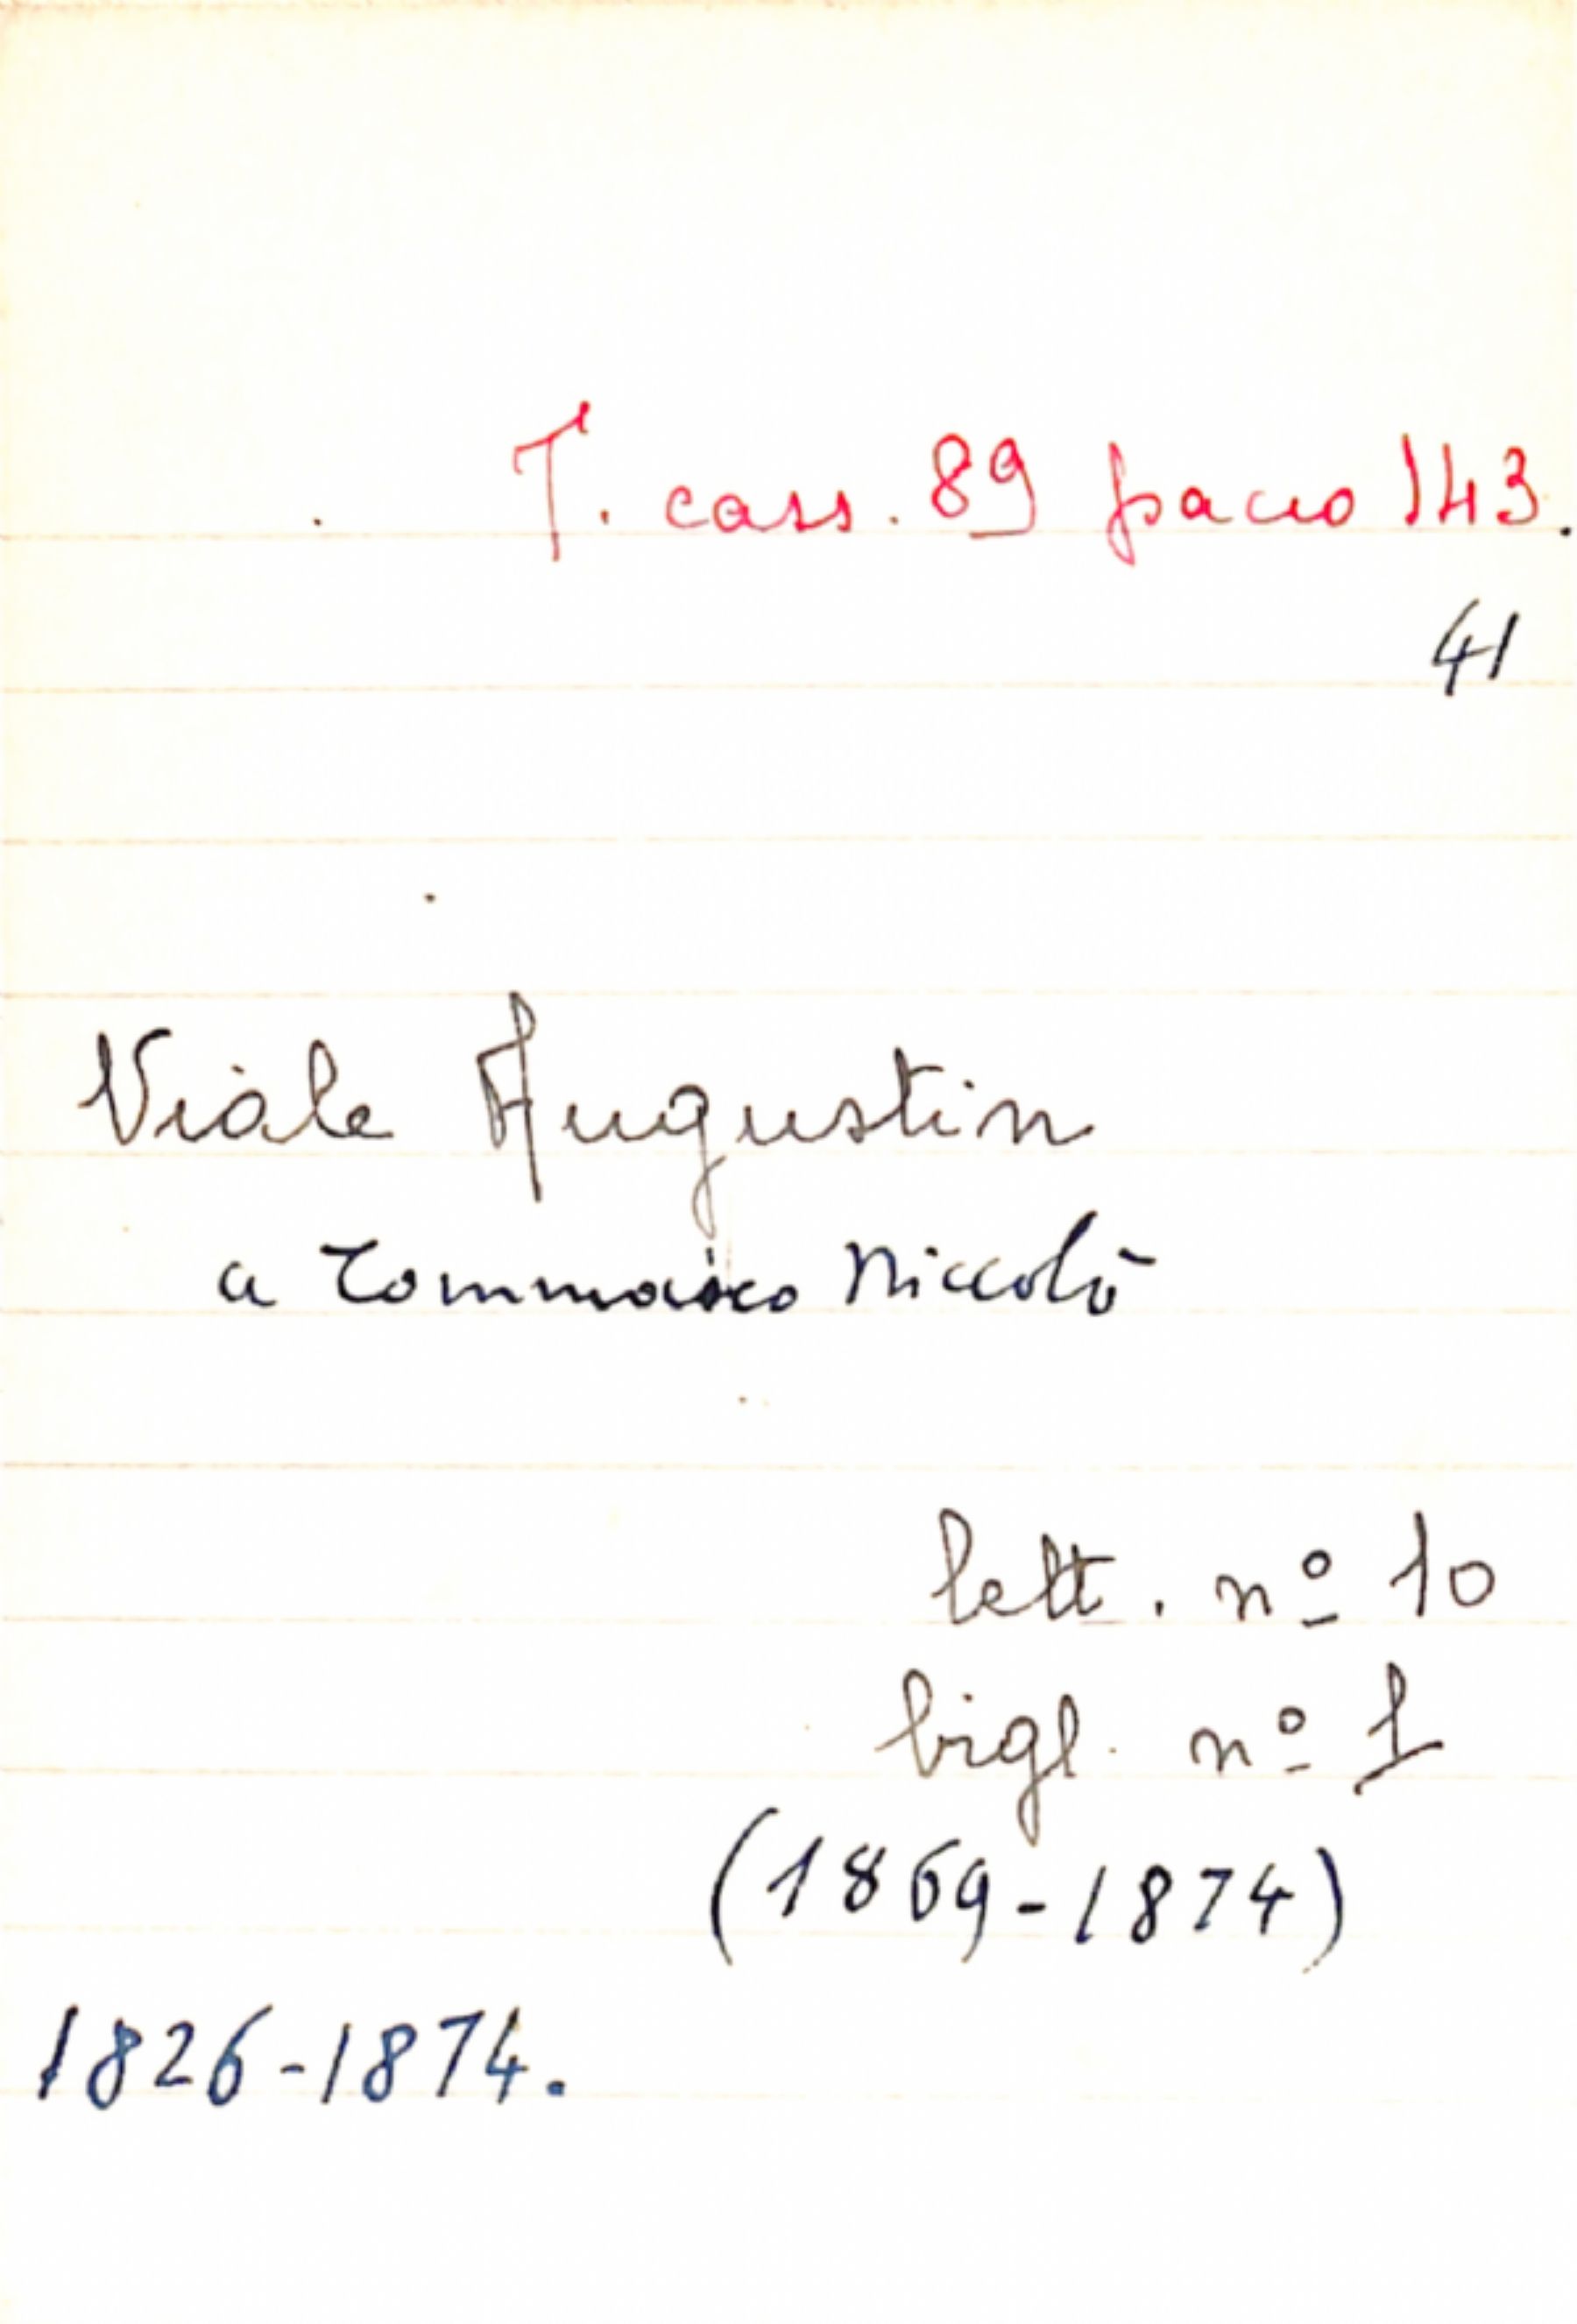 T. cass. 89 pacco 143.
41
Viale Augustin
a Tommaseo Niccolò
lett. nº 10
bigl. nº 1
(1869-1874)
1826-1874.